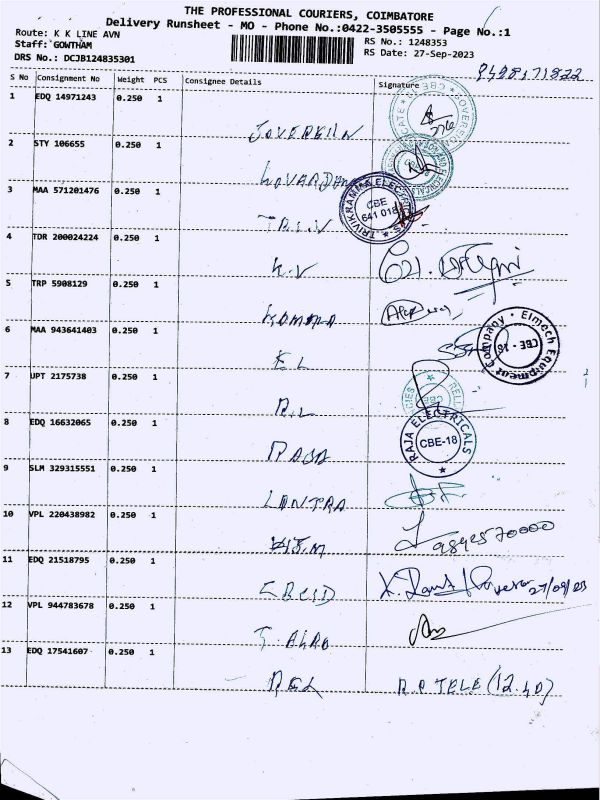 THE PROFESSIONAL COURIERS, COIMBATORE
Delivery Runsheet - MO - Phone No.:0422-3505555 - Page No.:1
Route: K K LINE AVN
RS No.: 1248353
Staff: GOWTHAM
RS Date: 27-Sep-2023
DRS No.: DCJB124835301
S No Consignment No Weight PCS Consignee Details Signature
1 EDQ 14971243 0.250 1
2 STY 106655 0.250 1
3 MAA 571201476 0.250 1
TRIVIKRAMMA ELECTRICALS CBE 641 018
4 TDR 200024224 0.250 1 K.V
5 TRP 5908129 0.250 1
6 MAA 943641403 0.250 1 EL
Elmech Equipment Company CBE - 18
7 UPT 2175738 0.250 1 R.L
8 EDQ 16632065 0.250 1 RAJA
RAJA ELECTRICALS CBE-18
9 SLM 329315551 0.250 1 LANTRA
10 VPL 220438982 0.250 1
11 EDQ 21518795 0.250 1 CBCID 27/09/23
12 VPL 944783678 0.250 1
13 EDQ 17541607 0.250 1 REL R.P TELE (12.40)